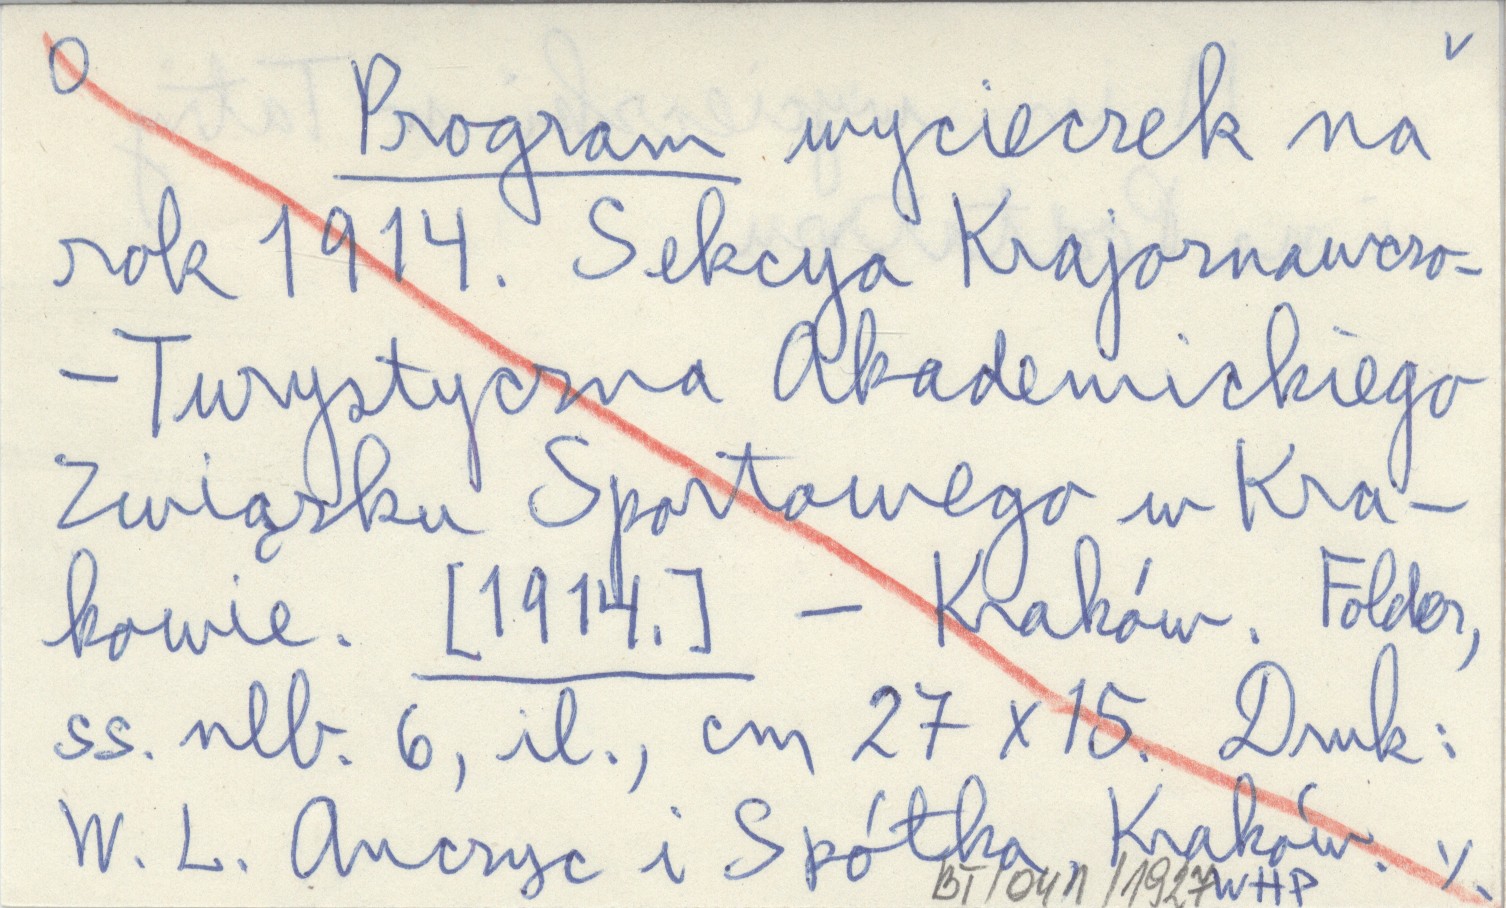 O v
Program wycieczek na
rok 1914. Sekcya Krajoznawczo-
-Turystyczna Akademickiego
Związku Sportowego w Kra-
kowie. [1914.] – Kraków. Folder,
ss. nlb. 6, il., cm 27 x 15. Druk:
W. L. Anczyc i Spółka, Kraków. y.
WHP